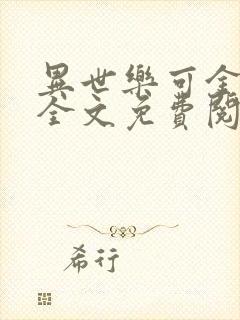 異世樂可全
全文免費閱
希行